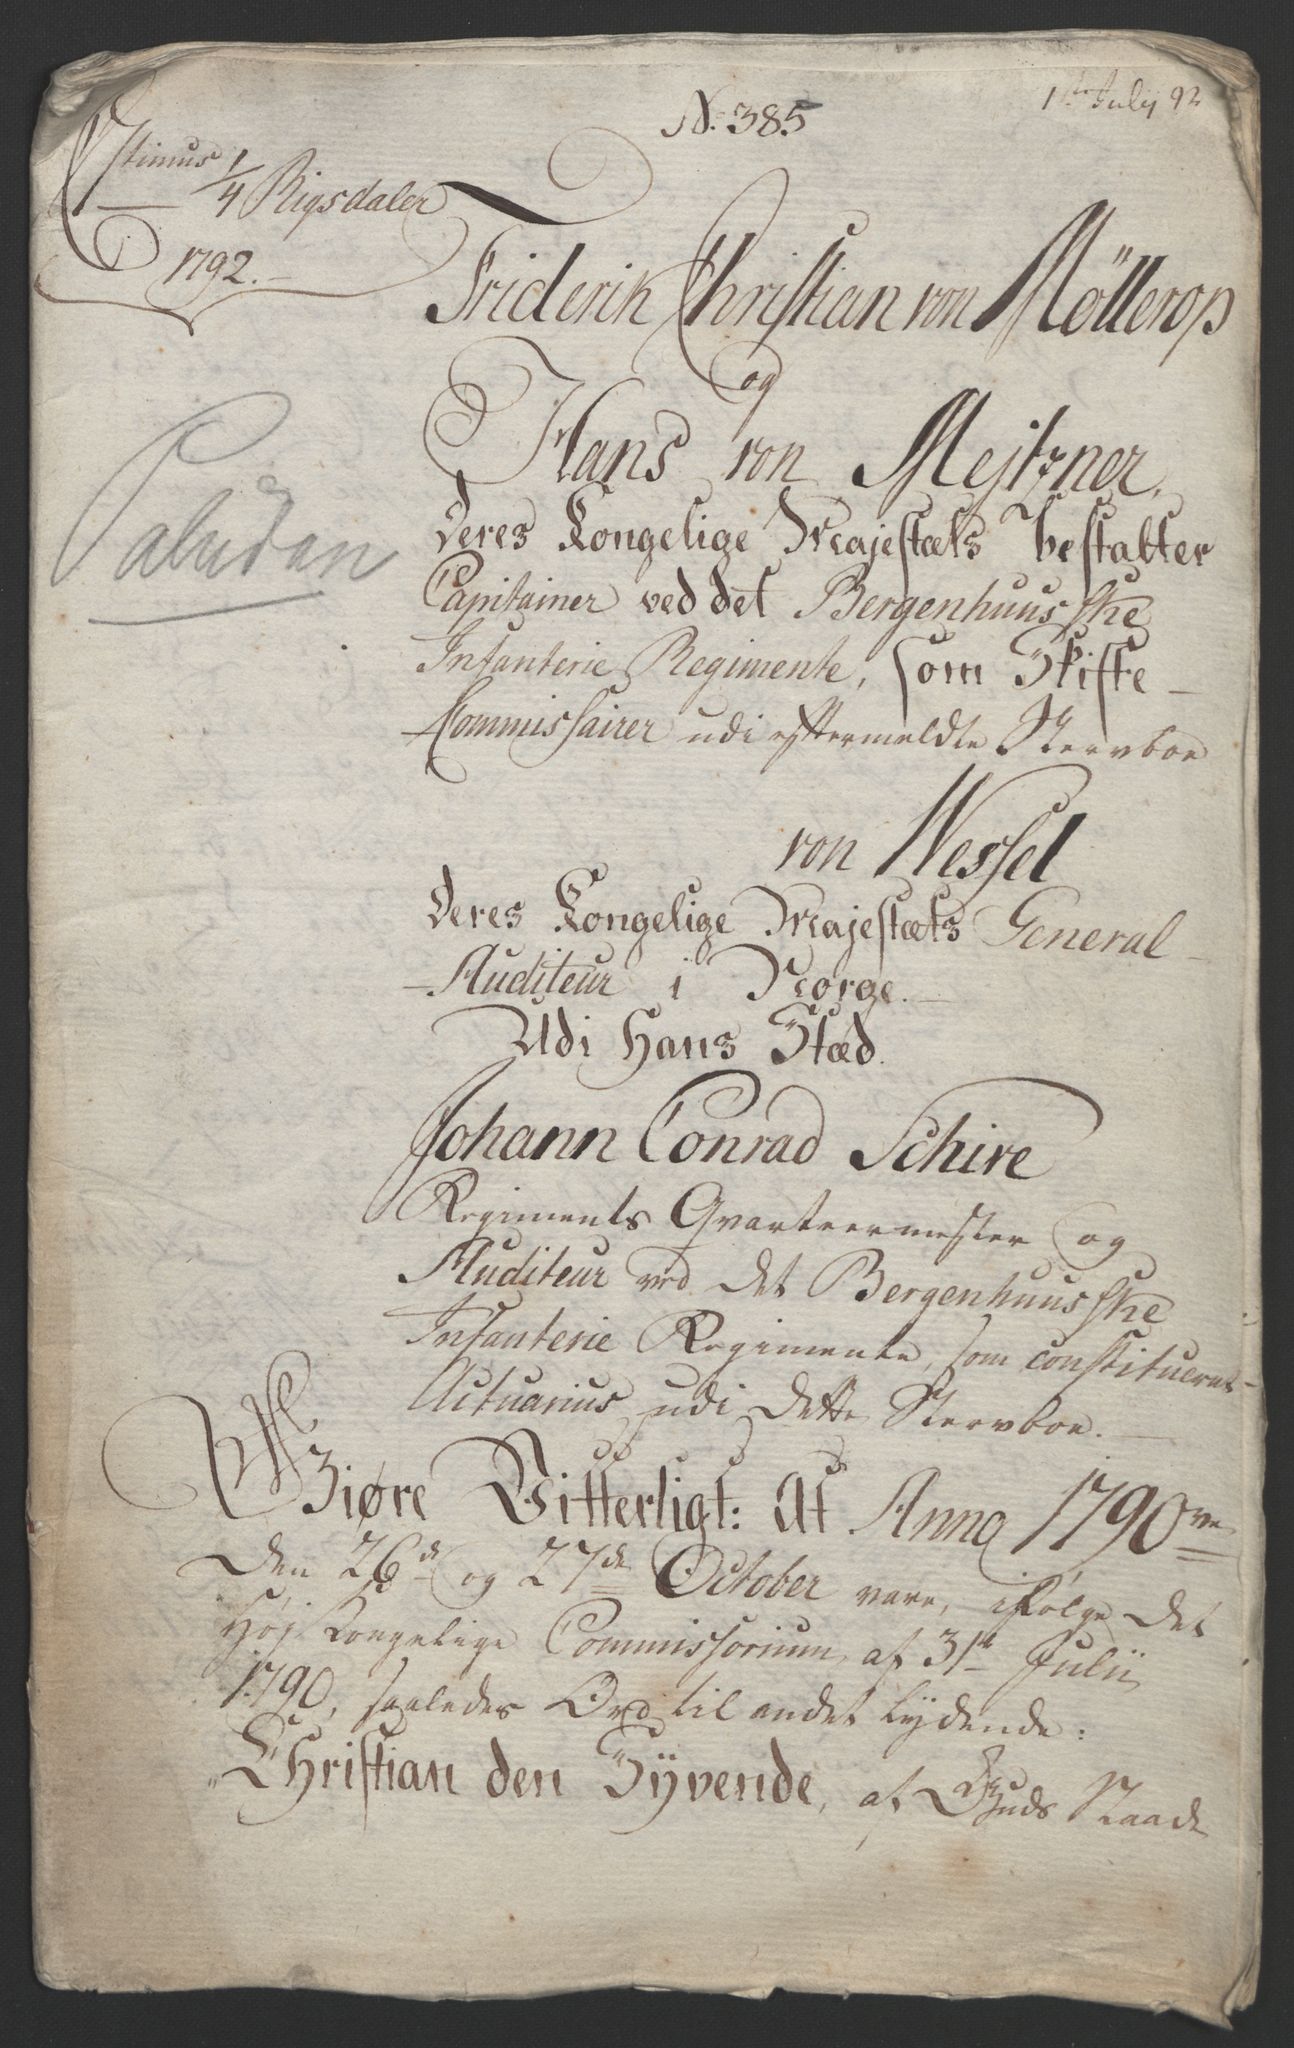 No. 385
1ste July 92
1/4 Rigsdaler
1792.
Friderik Christian von Möllerop
og
Hans von Mejtzner,
Deres Kongelige Majestæts bestalter
Capitainer ved det Bergenhuus ske
Infanterie Regimente, som Skifte-
Commissairer udi eftermeldte Stervboe
von Wessel
Deres Kongelige Majestæts General-
Auditeur i Norge.
Udi Hans Stæd.
Johann Conrad Schive
Regiments Qvarteermester og
Auditeur ved det Bergenhuus ske
Infanterie Regimente, som constitueret
Actuarius udi dette Stervboe.
Paludan
Giøre Vitterligt: At Anno 1790ve
den 26de og 27de October vare, ifølge det
Høj Kongelige Commissorium af 31te Julii
1790, saaledes Ord til andet lydende:
Christian den Syvende, af Guds Naade